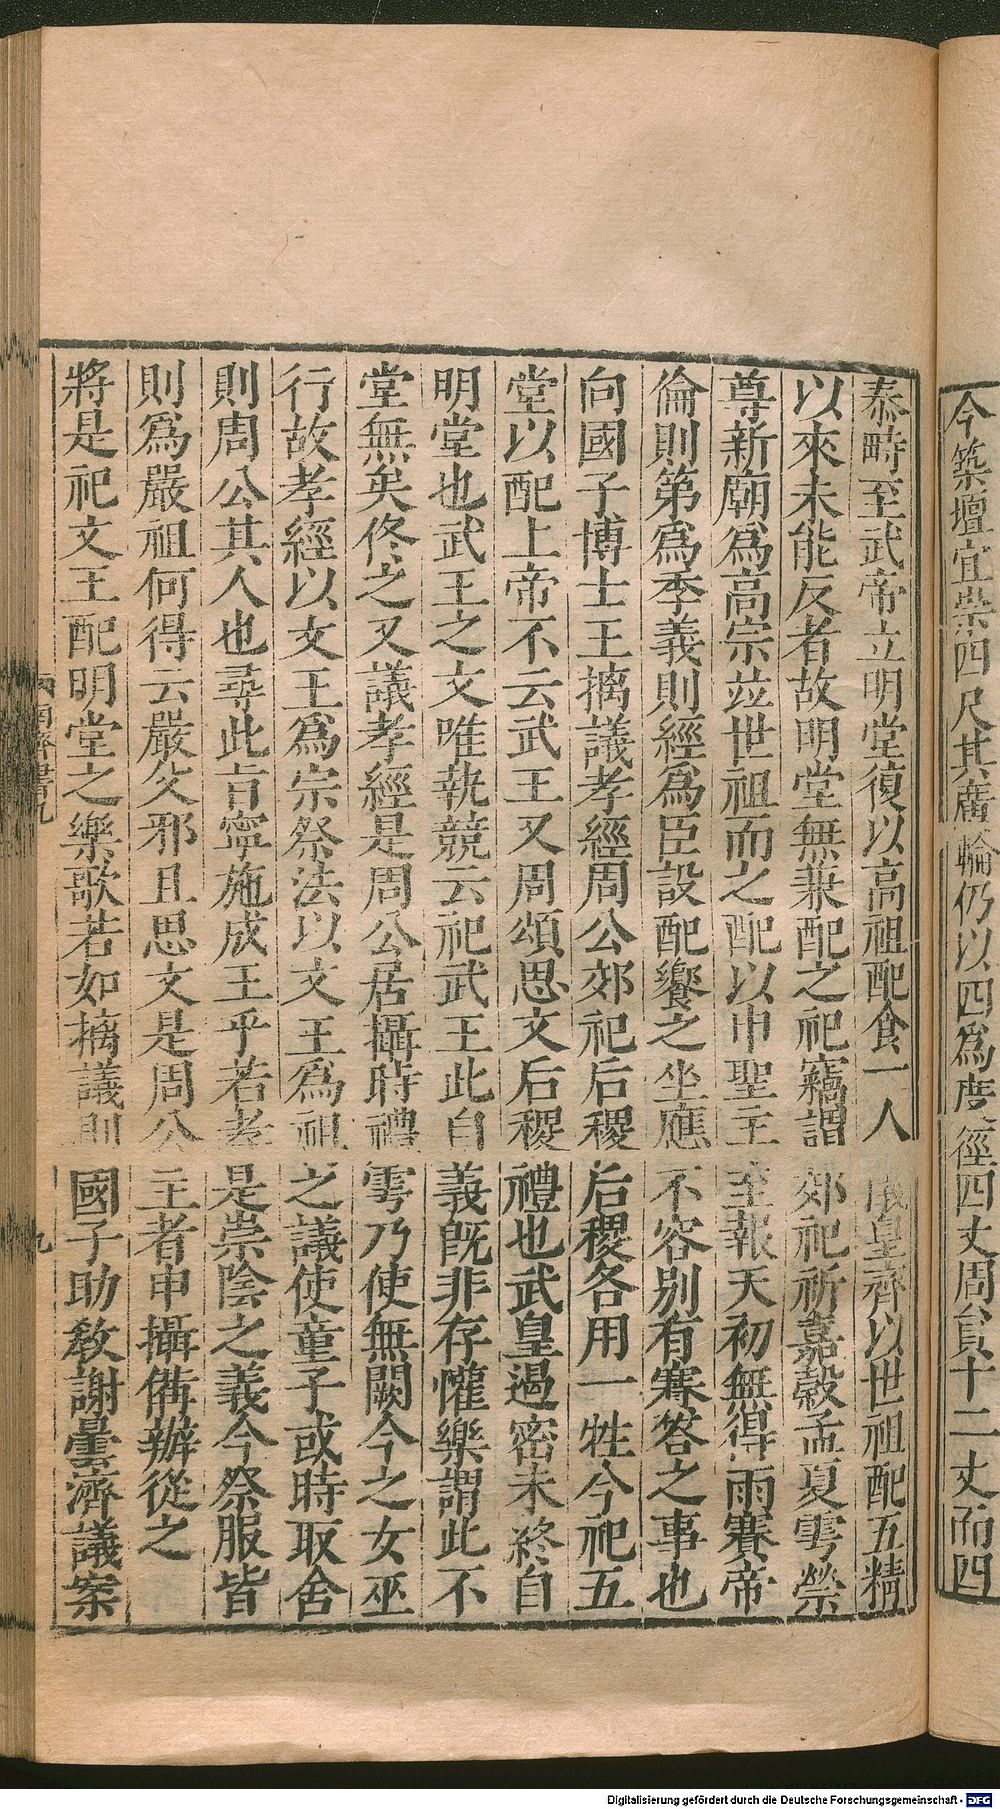 今築壇宜崇四尺其廣輪仍以四爲度徑四丈周員十二丈而四
泰畤至武帝立明堂復以高祖配食一人皇齊以世祖配五精
以來未能反者故明堂無兼配之祀竊謂郊祀祈嘉穀孟夏雩禜
尊新廟爲高宗竝世祖而之配以申聖主至報天初無得雨賽帝
倫則第爲季義則經爲臣設配饗之坐應不容別有賽答之事也
向國子博士王摛議孝經周公郊祀后稷后稷各用一牲今祀五
堂以配上帝不云武王又周頌思文后稷禮也武皇遏密未終自
明堂也武王之文唯執競云祀武王此自義既非存懽樂謂此不
堂無矣佟之又議孝經是周公居攝時禮雩乃使無闕今之女巫
行故孝經以文王爲宗祭法以文王爲祖之議使童子或時取舍
則周公其人也尋此旨寧施成王乎若孝是崇陰之義今祭服皆
則爲嚴祖何得云嚴父邪且思文是周公主者申攝備辦從之
將是祀文王配明堂之樂歌若如摛議則國子助教謝曇濟議案
南齊書九
九
Digitalisierung gefördert durch die Deutsche Forschungsgemeinschaft - DFG